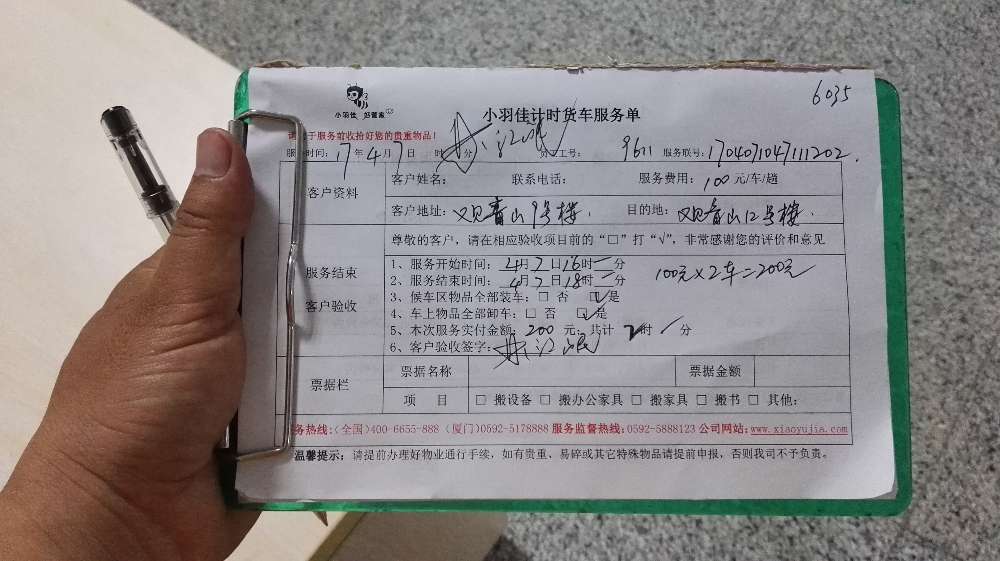 6035
小羽佳 好管家
小羽佳计时货车服务单
于服务前收拾好您的贵重物品！
服务时间：17年4月7日 时 分 员工工号：9611 服务联号：170407104711202.
客户资料
客户姓名： 联系电话： 服务费用：100元/车/趟
客户地址：又见青山9号楼. 目的地：又见青山12号楼.
服务结束
客户验收
尊敬的客户，请在相应验收项目前的“□”打“√”，非常感谢您的评价和意见
1、服务开始时间：4月7日16时 分
2、服务结束时间：4月7日18时 分
100元×2车=200元
3、候车区物品全部装车：□ 否 □ 是
4、车上物品全部卸车：□ 否 □ 是
5、本次服务实付金额：200元，共计 时 分
6、客户验收签字：
票据栏
票据名称 票据金额
项 目 □ 搬设备 □ 搬办公家具 □ 搬家具 □ 搬书 □ 其他：
务热线：(全国)400-6655-888 (厦门)0592-5178888 服务监督热线：0592-5888123 公司网站：www.xiaoyujia.com
温馨提示：请提前办理好物业通行手续，如有贵重、易碎或其它特殊物品请提前申报，否则我司不予负责。